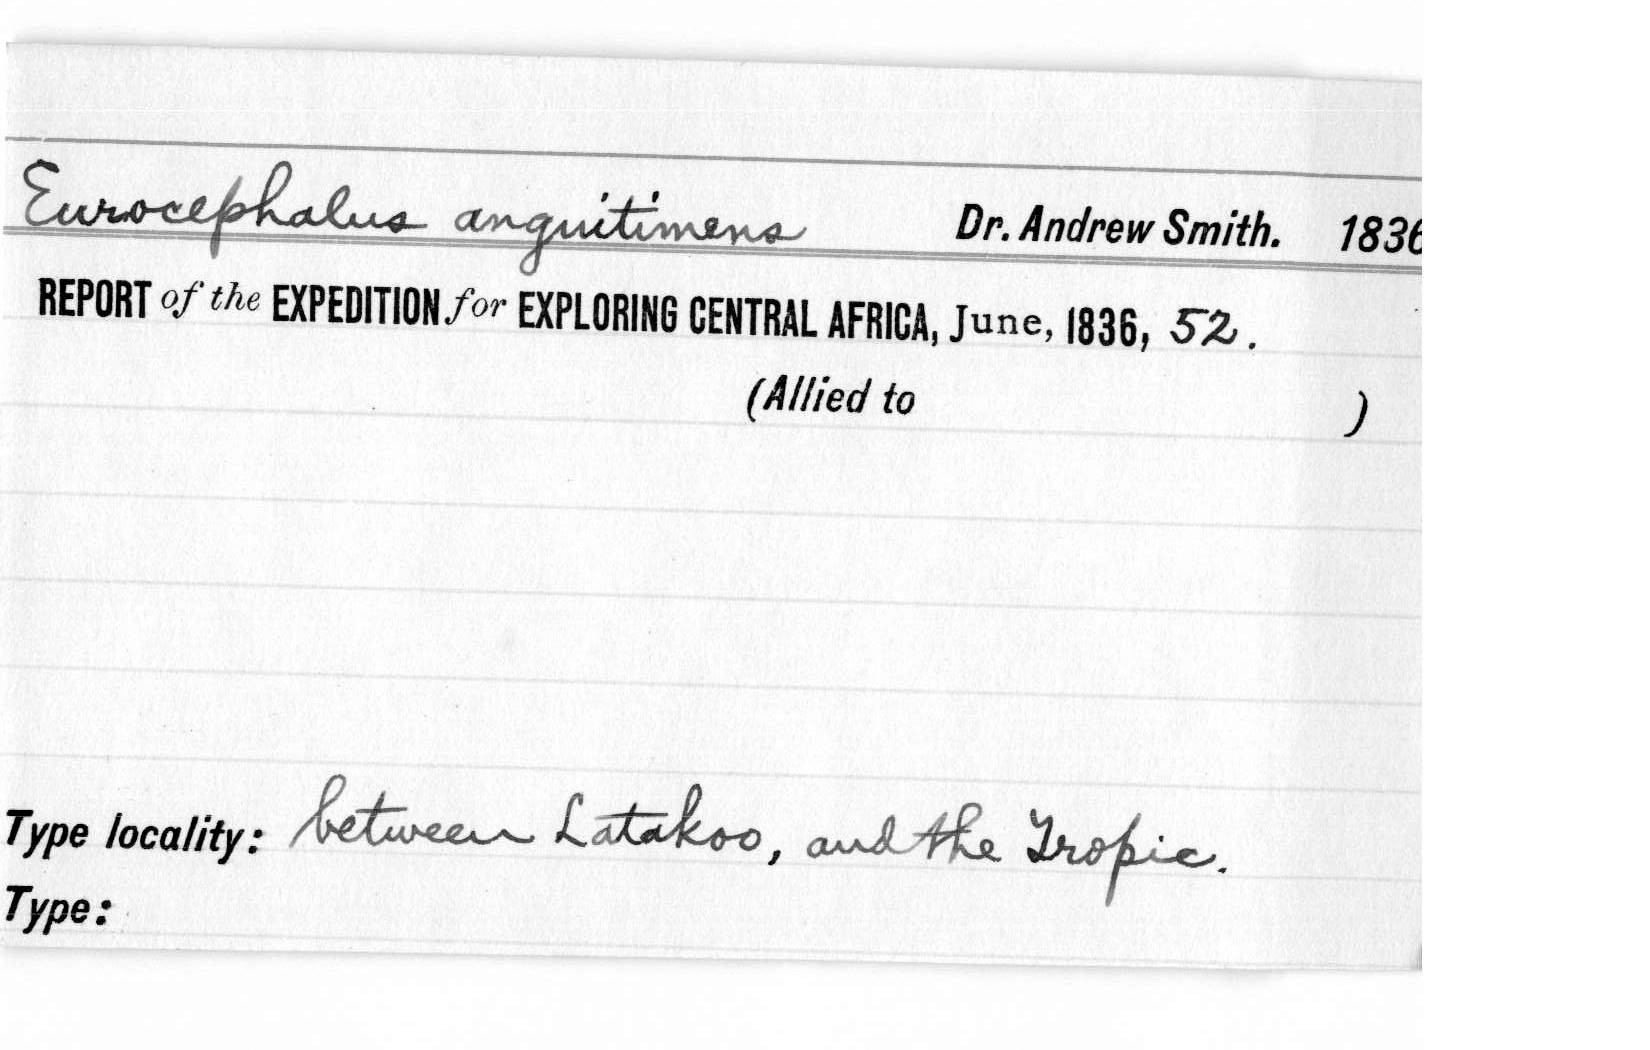 Eurocephalus anguitimens Dr. Andrew Smith. 1836
REPORT of the EXPEDITION for EXPLORING CENTRAL AFRICA, June, 1836, 52.
(Allied to )
Type locality: between Latakoo, and the Tropic.
Type: